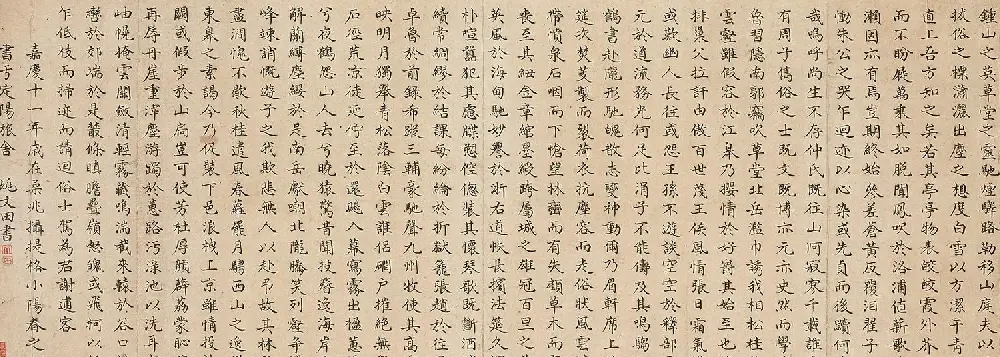 鍾山之英草堂之靈馳煙驛路勒移山庭夫以
拔俗之標瀟灑出塵之想度白雪以方潔干青
直上吾方知之矣若其亭亭物表皎皎霞外芥
而不盼屣萬乘其如脫聞鳳吹於洛浦值薪歌
瀨固亦有焉豈期終始參差蒼黃反覆淚翟子
慟朱公之哭乍迴迹以心染或先貞而後黷何
哉嗚呼尚生不存仲氏既往山阿寂寥千載誰
有周子儁俗之士既文既博亦元亦史然而學
魯習隱南郭竊吹草堂北岳濫巾誘我相松桂
雲壑雖假容於江皋乃攖情於好爵其始至也
排巢父拉許由傲百世蔑王侯風情張日霜氣
或歎幽人長往或怨王孫不遊談空空於釋部
元於道流務光何足比涓子不能儔及其鳴騶
鶴書赴隴形馳魄散志變神動爾乃眉軒席
筵次焚芰製而裂荷衣抗塵容而走俗狀風雲
帶憤泉石咽而下愴望林巒而有失顧草木而
喪至其紐金章綰墨綬跨屬城之雄冠百里之
英風於海甸馳妙譽於浙右道帙長擯法筵久
朴諠囂犯其慮牒訴倥傯裝其懷琴歌既斷酒
續常綢繆於結課每紛綸於折獄籠張趙於往
卓魯於前籙希蹤三輔豪馳聲九州牧使其高
映明月獨舉青松落陰白雲誰侶磵戶摧絕無
石逕荒涼徒延佇至於還飆入幕寫霧出楹蕙
兮夜鶴怨山人去兮曉猿驚昔聞投簪逸海岸
解蘭縛塵纓於是南岳獻嘲北隴騰笑列壑爭
峰竦誚慨遊子之我欺悲無人以赴弔故其林
盡澗愧不歇秋桂遣風春蘿罷月騁西山之逸
東皋之素謁今乃促裝下邑浪栧上京雖情投
闕或假步於山扃豈可使芳杜厚顏薜荔蒙恥
再辱丹崖重滓塵游躅於蕙路汙淥池以洗耳
岫幌掩雲關斂清輕霧藏鳴湍截來轅於谷口
轡於郊端於是叢條瞋膽疊穎怒魄或飛柯以
乍低枝而掃迹而請迴俗士駕為君謝逋客
嘉慶十一年歲在柔兆攝提格小陽春之
書于淀陽旅舍 姚文田書